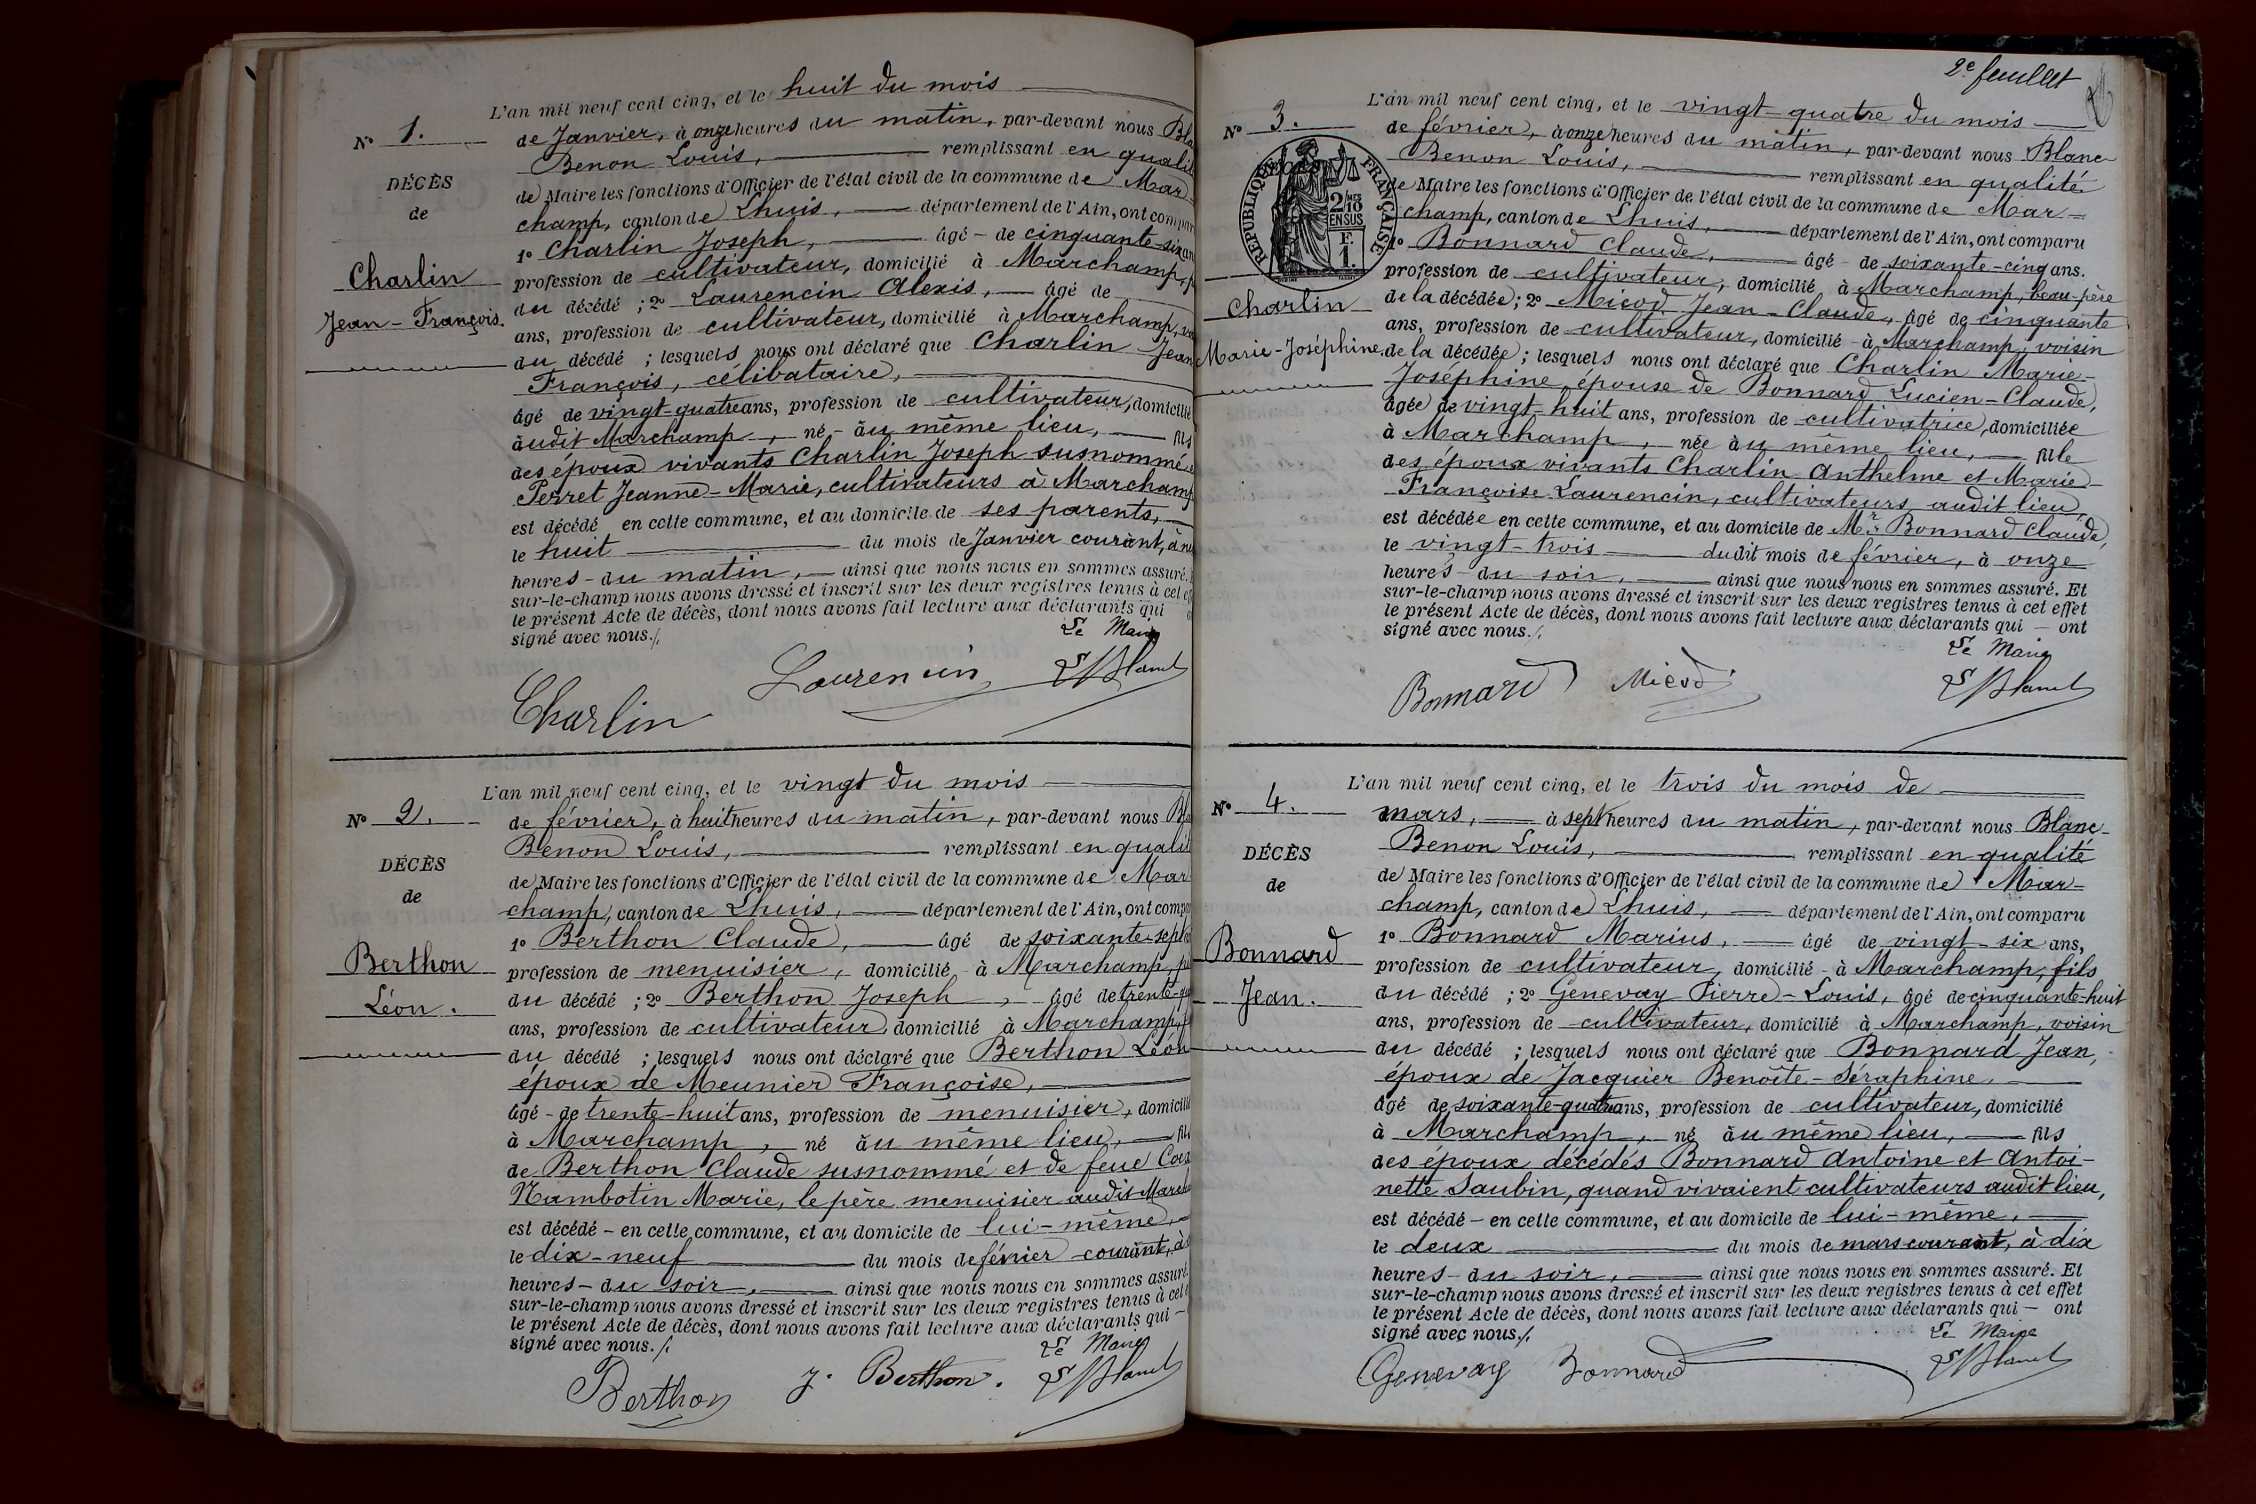 L'an mil neuf cent cinq, et le huit du mois
Nº 1.
de Janvier, à onze heures du matin, par-devant nous
Benon Louis, remplissant en
DÉCÈS
de Maire les fonctions d'Officier de l'état civil de la commune de Mar-
de
champ, canton de Lhuis, département de l'Ain, ont
1º Charlin Joseph, âgé de cinquante-six
Charlin
profession de cultivateur, domicilié à Marchamp,
Jean-François.
du décédé ; 2º Laurencin Alexis, âgé de
ans, profession de cultivateur, domicilié à Marchamp,
du décédé ; lesquels nous ont déclaré que Charlin Jean
François, célibataire,
âgé de vingt-quatre ans, profession de cultivateur, domicilié
audit Marchamp, né au même lieu, fils
des époux vivants Charlin Joseph susnommé
Perret Jeanne-Marie, cultivateurs à Marchamp
est décédé en cette commune, et au domicile de ses parents,
le huit du mois de Janvier courant, à
heures du matin, ainsi que nous nous en sommes assuré.
sur-le-champ nous avons dressé et inscrit sur les deux registres tenus à cet
le présent Acte de décès, dont nous avons fait lecture aux déclarants qui
signé avec nous./.
Le Maire
Charlin Laurencin LBlanc
L'an mil neuf cent cinq, et le vingt du mois
Nº 2.
de février, à huit heures du matin, par-devant nous
Benon Louis, remplissant en
DÉCÈS
de Maire les fonctions d'Officier de l'état civil de la commune de Mar
de
champ, canton de Lhuis, département de l'Ain, ont
1º Berthon Claude, âgé de soixante-sept
Berthon
profession de menuisier, domicilié à Marchamp,
Léon.
du décédé ; 2º Berthon Joseph, âgé de
ans, profession de cultivateur, domicilié à Marchamp,
du décédé ; lesquels nous ont déclaré que Berthon Léon
époux de Meunier Françoise,
âgé de trente-huit ans, profession de menuisier, domicilié
à Marchamp, né au même lieu, fils
de Berthon Claude susnommé et de feue
Nambotin Marie, le père menuisier audit
est décédé en cette commune, et au domicile de lui-même,
le dix-neuf du mois de février courant, à
heures du soir, ainsi que nous nous en sommes assuré
sur-le-champ nous avons dressé et inscrit sur les deux registres tenus à cet
le présent Acte de décès, dont nous avons fait lecture aux déclarants qui
signé avec nous./.
Le Maire
Berthon J. Berthon. LBlanc
2e feuillet
L'an mil neuf cent cinq, et le vingt-quatre du mois
Nº 3.
de février, à onze heures du matin, par-devant nous Blanc
Benon Louis, remplissant en qualité
RÉPUBLIQUE FRANÇAISE
2/10
EN SUS
F.
1.
de Maire les fonctions d'Officier de l'état civil de la commune de Mar-
champ, canton de Lhuis, département de l'Ain, ont comparu
1º Bonnard Claude, âgé de soixante-cinq ans.
profession de cultivateur, domicilié à Marchamp, beau-père
Charlin
de la décédée ; 2º Micod Jean-Claude, âgé de cinquante
ans, profession de cultivateur, domicilié à Marchamp, voisin
Marie-Joséphine.
de la décédée ; lesquels nous ont déclaré que Charlin Marie-
Joséphine épouse de Bonnard Lucien-Claude,
âgée de vingt-huit ans, profession de cultivatrice, domiciliée
à Marchamp, née au même lieu, fille
des époux vivants Charlin Anthelme et Marie-
Françoise Laurencin, cultivateurs audit lieu
est décédée en cette commune, et au domicile de Mr Bonnard Claude,
le vingt-trois dudit mois de février, à onze
heures du soir, ainsi que nous nous en sommes assuré. Et
sur-le-champ nous avons dressé et inscrit sur les deux registres tenus à cet effet
le présent Acte de décès, dont nous avons fait lecture aux déclarants qui ont
signé avec nous./.
Le Maire
Bonnard Micod LBlanc
L'an mil neuf cent cinq, et le trois du mois de
Nº 4.
mars, à sept heures du matin, par-devant nous Blanc-
Benon Louis, remplissant en qualité
DÉCÈS
de Maire les fonctions d'Officier de l'état civil de la commune de Mar-
de
champ, canton de Lhuis, département de l'Ain, ont comparu
1º Bonnard Marius, âgé de vingt-six ans,
Bonnard
profession de cultivateur, domicilié à Marchamp, fils
Jean.
du décédé ; 2º Genevay Pierre-Louis, âgé de cinquante-huit
ans, profession de cultivateur, domicilié à Marchamp, voisin
du décédé ; lesquels nous ont déclaré que Bonnard Jean,
époux de Jacquier Benoîte-Séraphine,
âgé de soixante-quatre ans, profession de cultivateur, domicilié
à Marchamp, né au même lieu, fils
des époux décédés Bonnard Antoine et Antoi-
nette Saubin, quand vivaient cultivateurs audit lieu,
est décédé en cette commune, et au domicile de lui-même,
le deux du mois de mars courant, à dix
heures du soir, ainsi que nous nous en sommes assuré. Et
sur-le-champ nous avons dressé et inscrit sur les deux registres tenus à cet effet
le présent Acte de décès, dont nous avons fait lecture aux déclarants qui ont
signé avec nous./.
Le Maire
Genevay Bonnard LBlanc